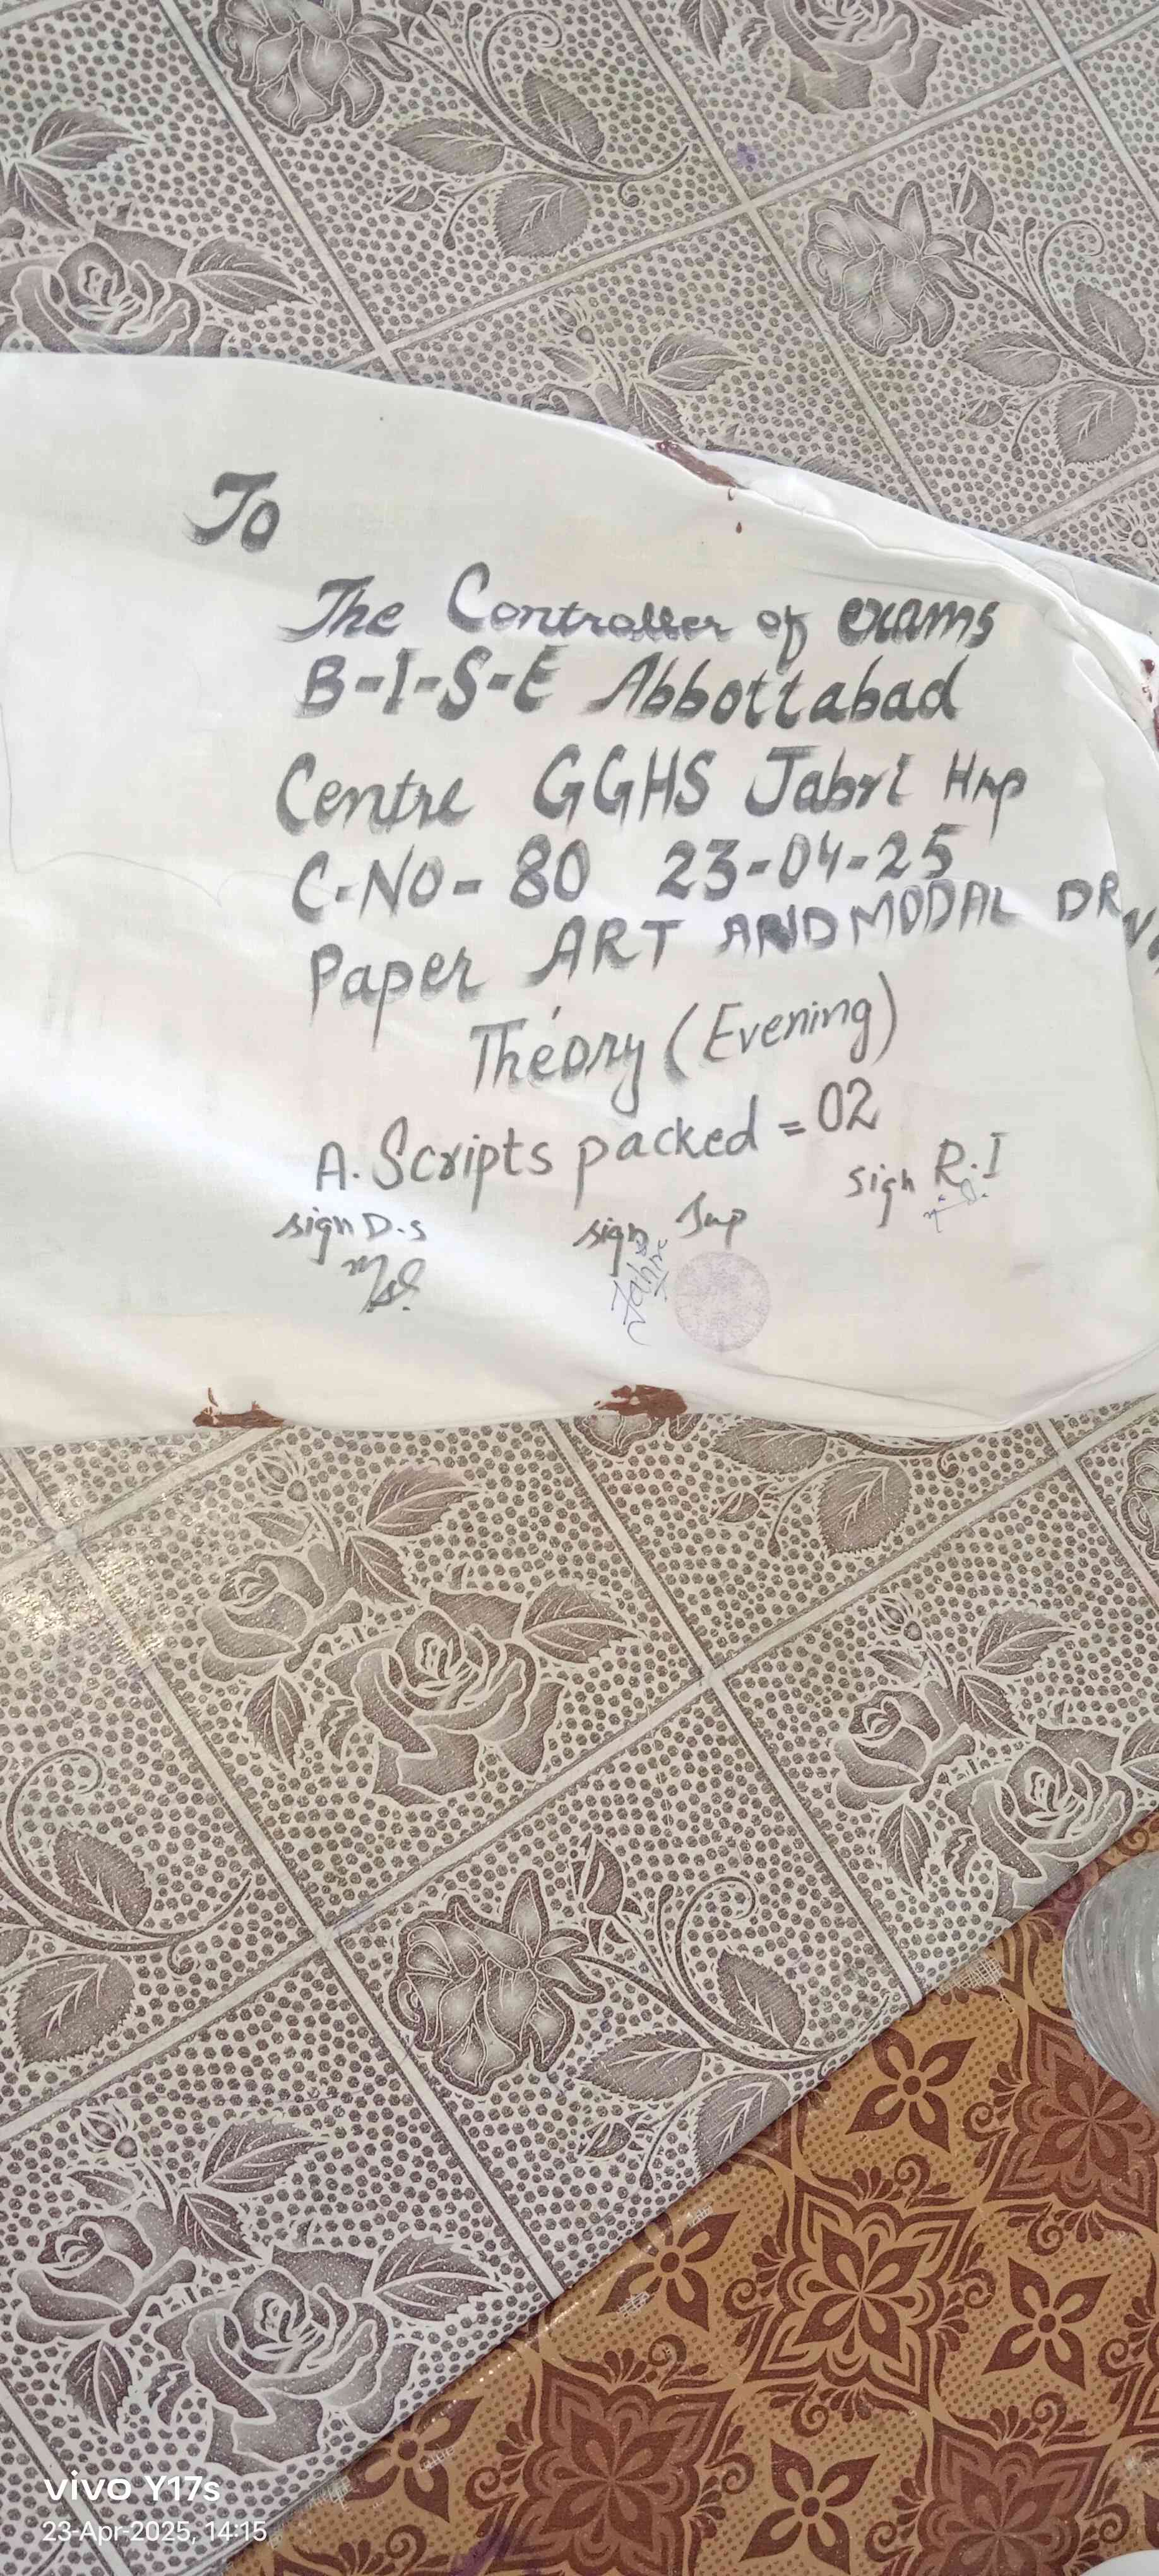 To
The Controller of exams
B-I-S-E Abbottabad
Centre GGHS Jabri Hrp
C-NO- 80 23-04-25
Paper ART AND MODAL DR
Theory (Evening)
A. Scripts packed = 02
sign D.s sign Sup sign R.I
vivo Y17s
23-Apr-2025, 14:15